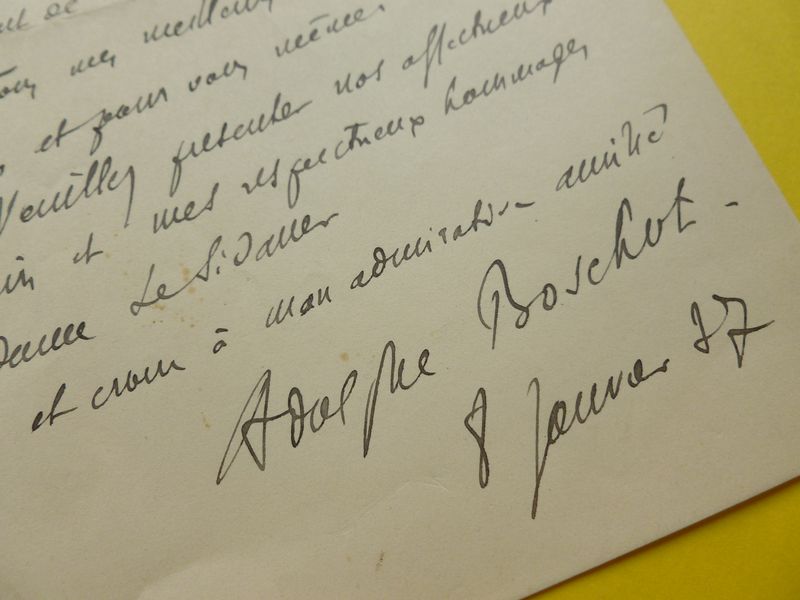 tous mes meilleurs
et pour vous même.
Veuillez présenter nos affectueux
et mes respectueux hommages
Le Sidaner
et croire à mon admirative amitié
Adolphe Boschot -
8 janvier 37